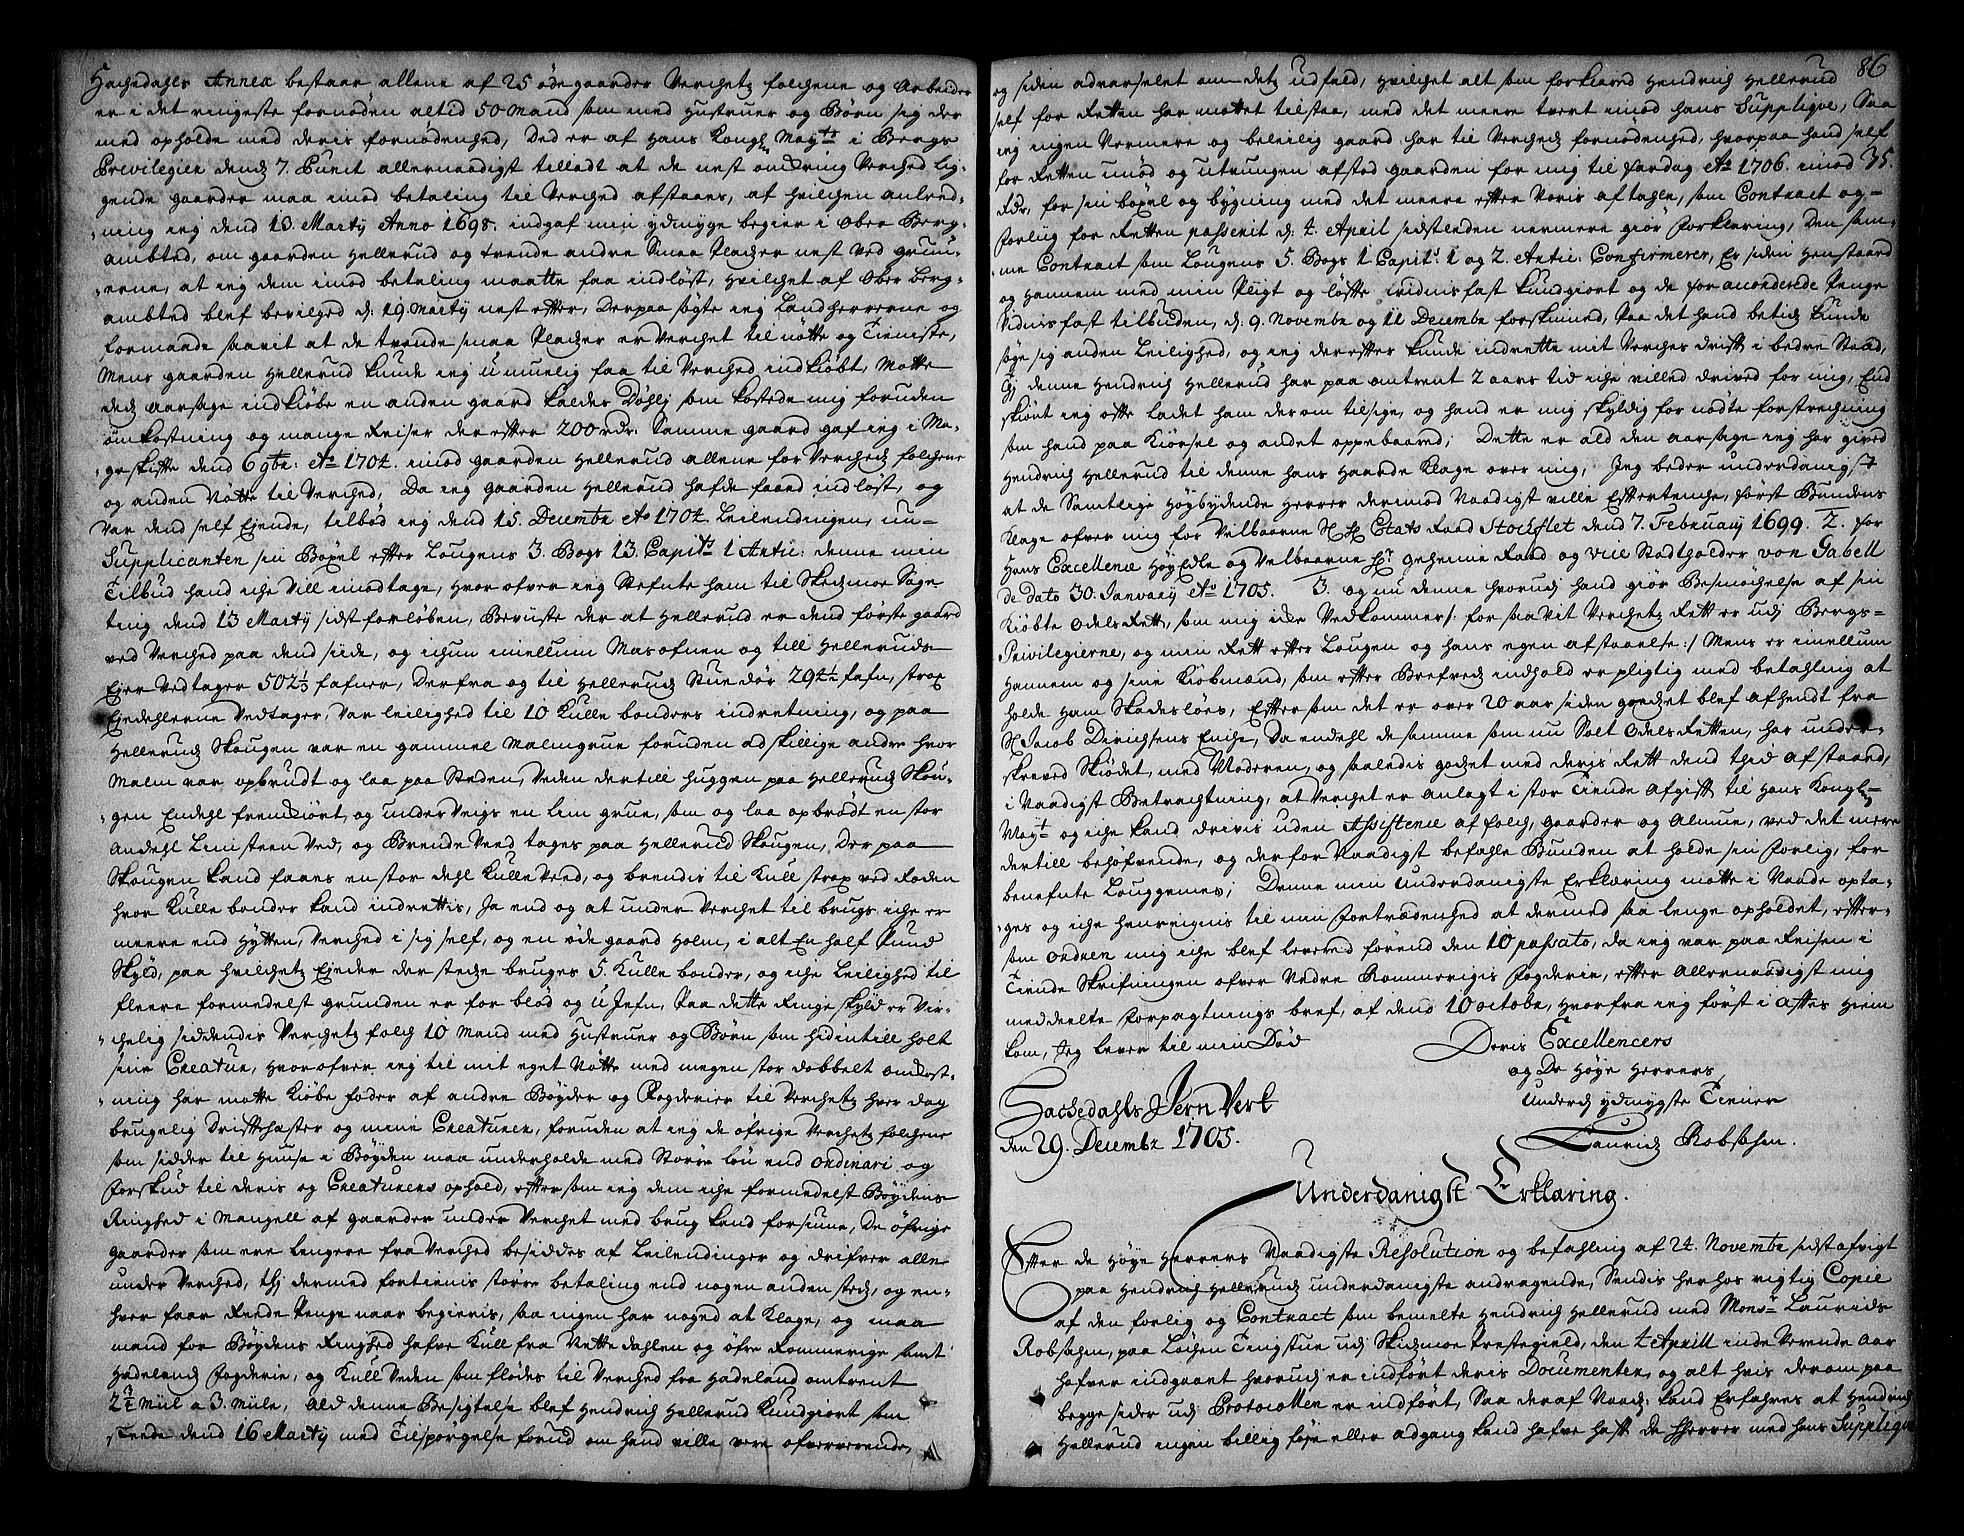 Hachedahls Annex bestaar allene af 25 ødegaarder Verchetz folchene og Arbeider
er i det ringeste fornøden altid 50 Mand som med Hustruer og Børn sig der
med opholde med deris fornødenhed, Ded er af Hans Kongl: Mayts i Bergs
Previlegier dends 7. Punct allernaadigst tilladt at de nest omkring Verched lig-
gende gaarder maa imod betaling til Verched afstaaes, af hvilchen anled-
ning ieg dend 13. Marty Anno 1698. indgaf min ydmyge begier i Ober Berg-
ambted, om gaarden Hellerud og tvende andre Smaa Pladser nest ved gruu-
erne, at ieg dem imod betaling maatte faa indløst, hvilchet af Ober Berg-
ambted blef bevilged d: 19. Marty nest efter, Derpaa søgte ieg Landherrerne og
formaade saavit at de tvende smaa Pladser er Verchet til nøtte og Tienneste,
Mens gaarden Hellerud kunde ieg umuelig faa til Verched indkiøbt, Motte
ded aarsage indkiøbe en anden gaard kaldes Døhlj som kostede mig foruden
omkostning og mange Reiser der efter 200 rdr: Samme gaard gaf ieg i Ma-
geskifte dend 6 9br: Ao 1704. imod gaarden Hellerud allene for Verchets folchene
og anden Nøtte til Verched, Da ieg gaarden Hellerud hafde faaed indløst, og
var dend self Ejende, tilbød ieg dend 15. Decembr Ao 1704. Leilendingen, nu-
Supplicanten sin Bøxel efter Lougens 3. Bogs 13. Capit: 1 Artic: denne min
Tilbud hand iche vill imodtage, Hvor ofver ieg Stefnte ham til Skedsmoe Sage
ting dend 13 Marty sidst forløben, Beviiste der at Hellerud er dend første gaard
ved Verched paa dend siide, og ichun imellum Masofnen og till Helleruds
Ejer Vedtager 502½ fafner, Derfra og til Helleruds Stue dør 294½ fafn, strax
Ejedehlerne Vedtager, var leilighed til 10 Kulle bonders indretning, og paa
Helleruds Skougen var en gammel Malmgrue foruden adskillige andre hvor
Malm var opbrudt og laa paa Steden, Veden dertill huggen paa Helleruds Skou-
gen Endehl fremkiørt, og underveigs en lim grue, som og laa opbrødt en stor
Andehl Limsteen Ved, og Brende Veed tages paa Hellerud Skougen, Der paa
Skougen kand faaes en stor dehl Kulle Veed, og brendis til Kull strax ved Roden
hvor Kulle bonder kand indrettis, Ja end og at under Verchet til brugs iche er
meere end Hytten, Verched i sig self, og en øde gaard Holm, i alt En half Pund
Skyld, paa hvilchetz Ejeder der stedse bruges 5. Kulle bonder, og iche Leilighed til
fleere formedelst grunden er for blød og u Jefn, Paa dette Ringe skyld er Vir-
chelig siddendis Verchetz folch 10 Mand med Hustruer og Børn som hidintill holt
sine Creatur, hvorofver ieg til mit eget Nøtte med megen stor dobbelt omkost-
ning har motte Kiøbe foder af andre Bøyder og Fogderier til Verchetz hver dag
brugelig Driftshester og mine Creaturer, foruden at ieg de øfrige Verchetz folchene
som sidder til Huuse i Bøyden maa underholde med Større løn end ordinari og
forskud til deris og Creaturers ophold, efter som ieg dem iche formedelst Bøydens
Ringhed i Mangell af gaarder under Verchet med brug kand forsiune, De øfrige
gaarder som ere lengere fra Verched besiddes af Leilendinger og drifver alle
under Verched, thj dermed fortienis større betaling end nogen anden steds, og en-
hver faar Reede Penge naar begieris, saa ingen har noged at Klage, og maa
mand for Bøydens Ringhed hafve Kull fra Nettedahlen og øfre Rommerige samt
Hadelands Fogderie, og Kull Veden som flødes til Verched fra Hadeland omtrent
2½ Miil a 3. Miile, Ald denne Besigtelse blef Hendrich Hellerud Kundgiort som
skeede dend 16 Marty med Tilspørgelse forud om hand ville vere ofververende,
86
og siden advarselet om detz udfald, hvilchet alt som forklared Hendrich Hellerud
self for Retten har mottet tilstaa, med det meere tvert imod hans Supplique, Saa
ieg ingen Nermere og beleilig gaard har til Verchets fornødenhed, hvorpaa hand self
for Retten unød og utvungen afstod gaarden for mig til fardag Ao 1706. imod 35.
Rdr, for sin bøxel og bygning med det meere efter Voris aftahle, som Contract og-
Forliig for Retten passerit d: 4 April sidstleden nermere giør forklering, Den sam-
me Contract som Lougens 5. Bogs 1 Capit: 1 og 2. Artic: Confirmerer, Er siden Henstaaed
og Hannem med min Pligt og løfte vidnisfast kundgiort og de foraccorderede Penge
Vidnisfast tilbuden, d: 9. Novembr og 11 Decembr forskinned, Paa det hand betids kunde
søge sig anden Leilighed, og ieg derefter kunde indrette mit Verches drift i bedre Stand,
Thj denne Hendrich Hellerud har paa omtrent 2 aars tid iche villed drived for mig, End
skiønt ieg ofte ladet ham derom tilsige, og hand er mig skyldig for nødte forstrechning
som hand paa Kiørsel og andet oppebaared; Dette er ald den aarsage ieg har gived
Hendrich Hellerud til denne hans Haarde Klage over mig, Jeg beder underdanigst
at de Samtlige Høybydende Herrer derimod Naadigst ville Eftertenche, Først Bundens
Klage ofver mig for Velbaarne Hr Etats Raad Stockflet dend 7. February 1699. 2. for
Hans Excellence HøyEdle og Velbaarne Hr Geheime Raad og Vice Stadtholder von Gabell
de dato 30. January Ao 1705. 3. og nu denne hvorudj hand giør Besmøchelse af sin
Kiøbte Odels Rett, som mig iche Vedkommer /: for saavit Verchetz Rett er udj Bergs-
Privilegierne, og min Rett efter Lougen og hans egen afstaaelse :/ Mens er imellum
Hannem og sine Kiøbmænd, som efter Brefveds indhold er pligtig med betahling at
holde Ham Skadesløes, Efter som det er over 20 aar siden godset blef afhendt fra
Sl Jacob Dirichsens Enche, Da endehl de samme som nu Solt Odels Retten, har under-
skreved Skiødet, med Moderen, og saaledis godset med deris Rett dend tid afstaaed,
i Naadigst Betrachtning, at Verchet er Anlagt i stor Tiende Afgift til Hans Kongl-
Mayt og iche kand drivis uden Assistence af folch, gaarder og Almue, ved det mere
dertill behøfvende, og derfor Naadigst befahle Bunden at holde sin Forlig, for
benefnte Louggemes; Denne min Underdanigste Erklæring motte i Naade opta-
ges og iche henreignis til min Fortrædenhed at dermed saa lenge opholdet, efter-
som ordren mig iche blef levered førend den 10 passato, da ieg var paa Reisen i
Tiende Skrifningen ofver Nedre Rommerigis Fogderie, efter Allernaadigst mig
meddeelte Forpagtnings bref, af dend 10 octobr, hvorfra ieg først i Aftes Hiem
kom, Jeg lever til min Død
Deris Excellencers
og De Høye Herrers
Underds ydmygste Tiener
Hachedahls Jern Verk
den 29. Decembr 1705.
Laurids Robsahm.
Underdanigst Erklæring.
Efter de Høye Herrers Naadigste Resolution og befahling af 24. Novembr sidst afvigt
paa Hendrich Helleruds underdanigste andragende, Sendis herhos rigtig Copie
af den forlig og Contract som bemelte Hendrich Hellerud med Monsr Laurids
Robsahm, paa Løchen Tingstue udj Skedsmoe Prestegield, den 4 Aprill indeværende Aar
hafver indgaaet hvorudj er indført deris Documenter, og alt hvis derom paa
begge sider udj Protocollen er indført, Saa deraf Naads: kand Erfahres at Hendrich
Hellerud ingen billig føje eller adgang kand hafve haft De HHerrer med hans Supplique